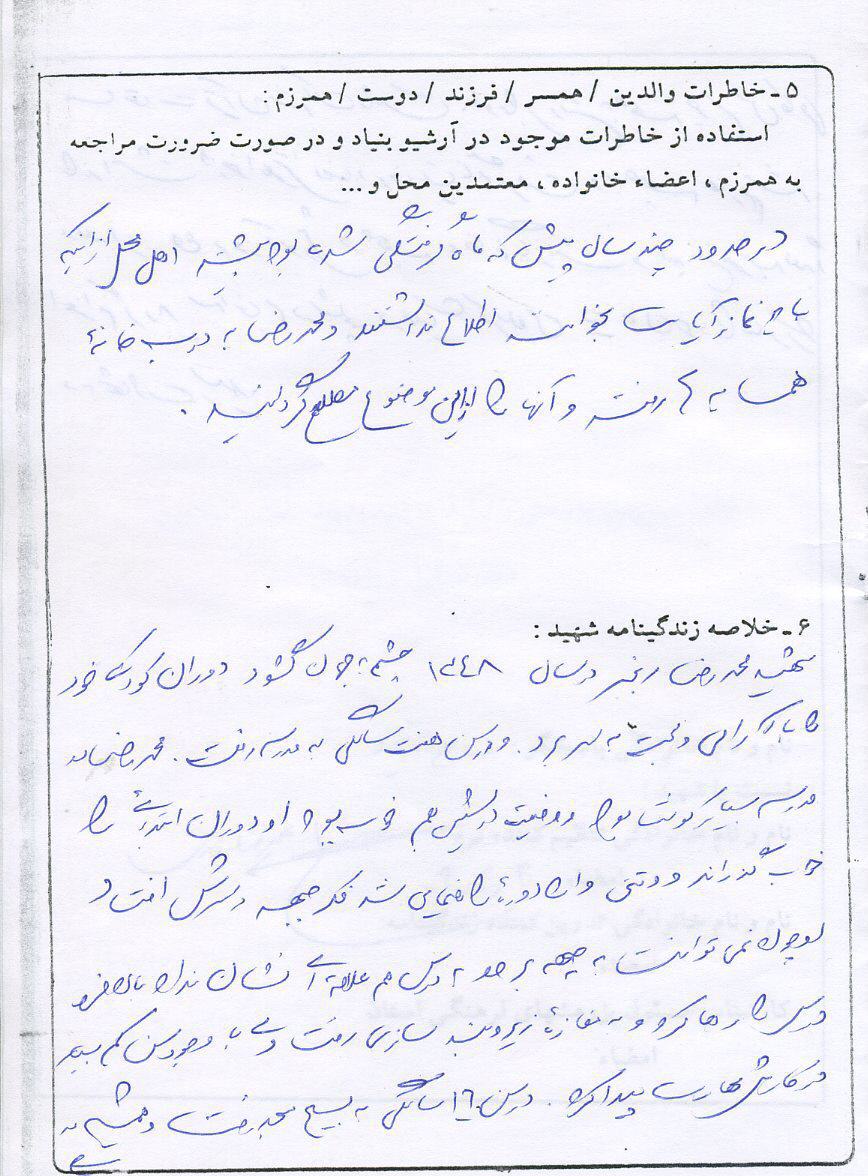 ۵ ـ خاطرات والدین / همسر / فرزند / دوست / همرزم :
استفاده از خاطرات موجود در آرشیو بنیاد و در صورت ضرورت مراجعه
به همرزم ، اعضاء خانواده ، معتمدین محل و ...
در حدود چند سال پیش که ماه گرفتگی شده بود بیشتر اهل محل از اینکه
باید نماز آیات بخوانند اطلاع نداشتند و محمدرضا به درب خانهٔ
همسایه ها رفته و آنها را از این موضوع مطلع گردانید .
۶ ـ خلاصه زندگینامه شهید :
شهید محمدرضا رنجبر در سال ۱۳۴۸ چشم به جهان گشود دوران کودکی خود
را با آرامی و محبت به سر برد . و در سن هفت سالگی به مدرسه رفت . محمدرضا در
مدرسه بسیار کوشا بود و وضعیت درسیش هم خوب بود او دوران ابتدائی را
خوب گذراند و وقتی وارد دورهٔ راهنمایی شد فکر جبهه در سرش افتاد و
او چون نمی توانست به جبهه برود به درس هم علاقه ای نشان نداد بالاخره
درس را رها کرد و به مغازهٔ در و پنجره سازی رفت ولی با وجود سن کم بسیار
در کارش مهارت پیدا کرد . در سن ۱۶ سالگی به بسیج محل رفت و همیشه به